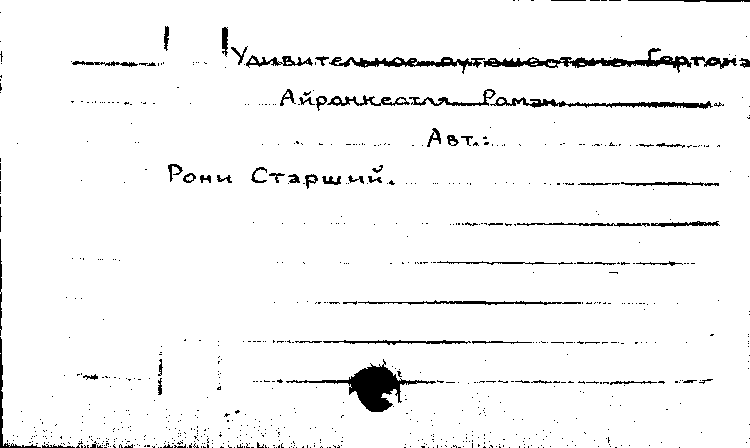 Удивительное путешествие Гертона
Айронкестля. Роман.
Авт.:
Рони Старший.